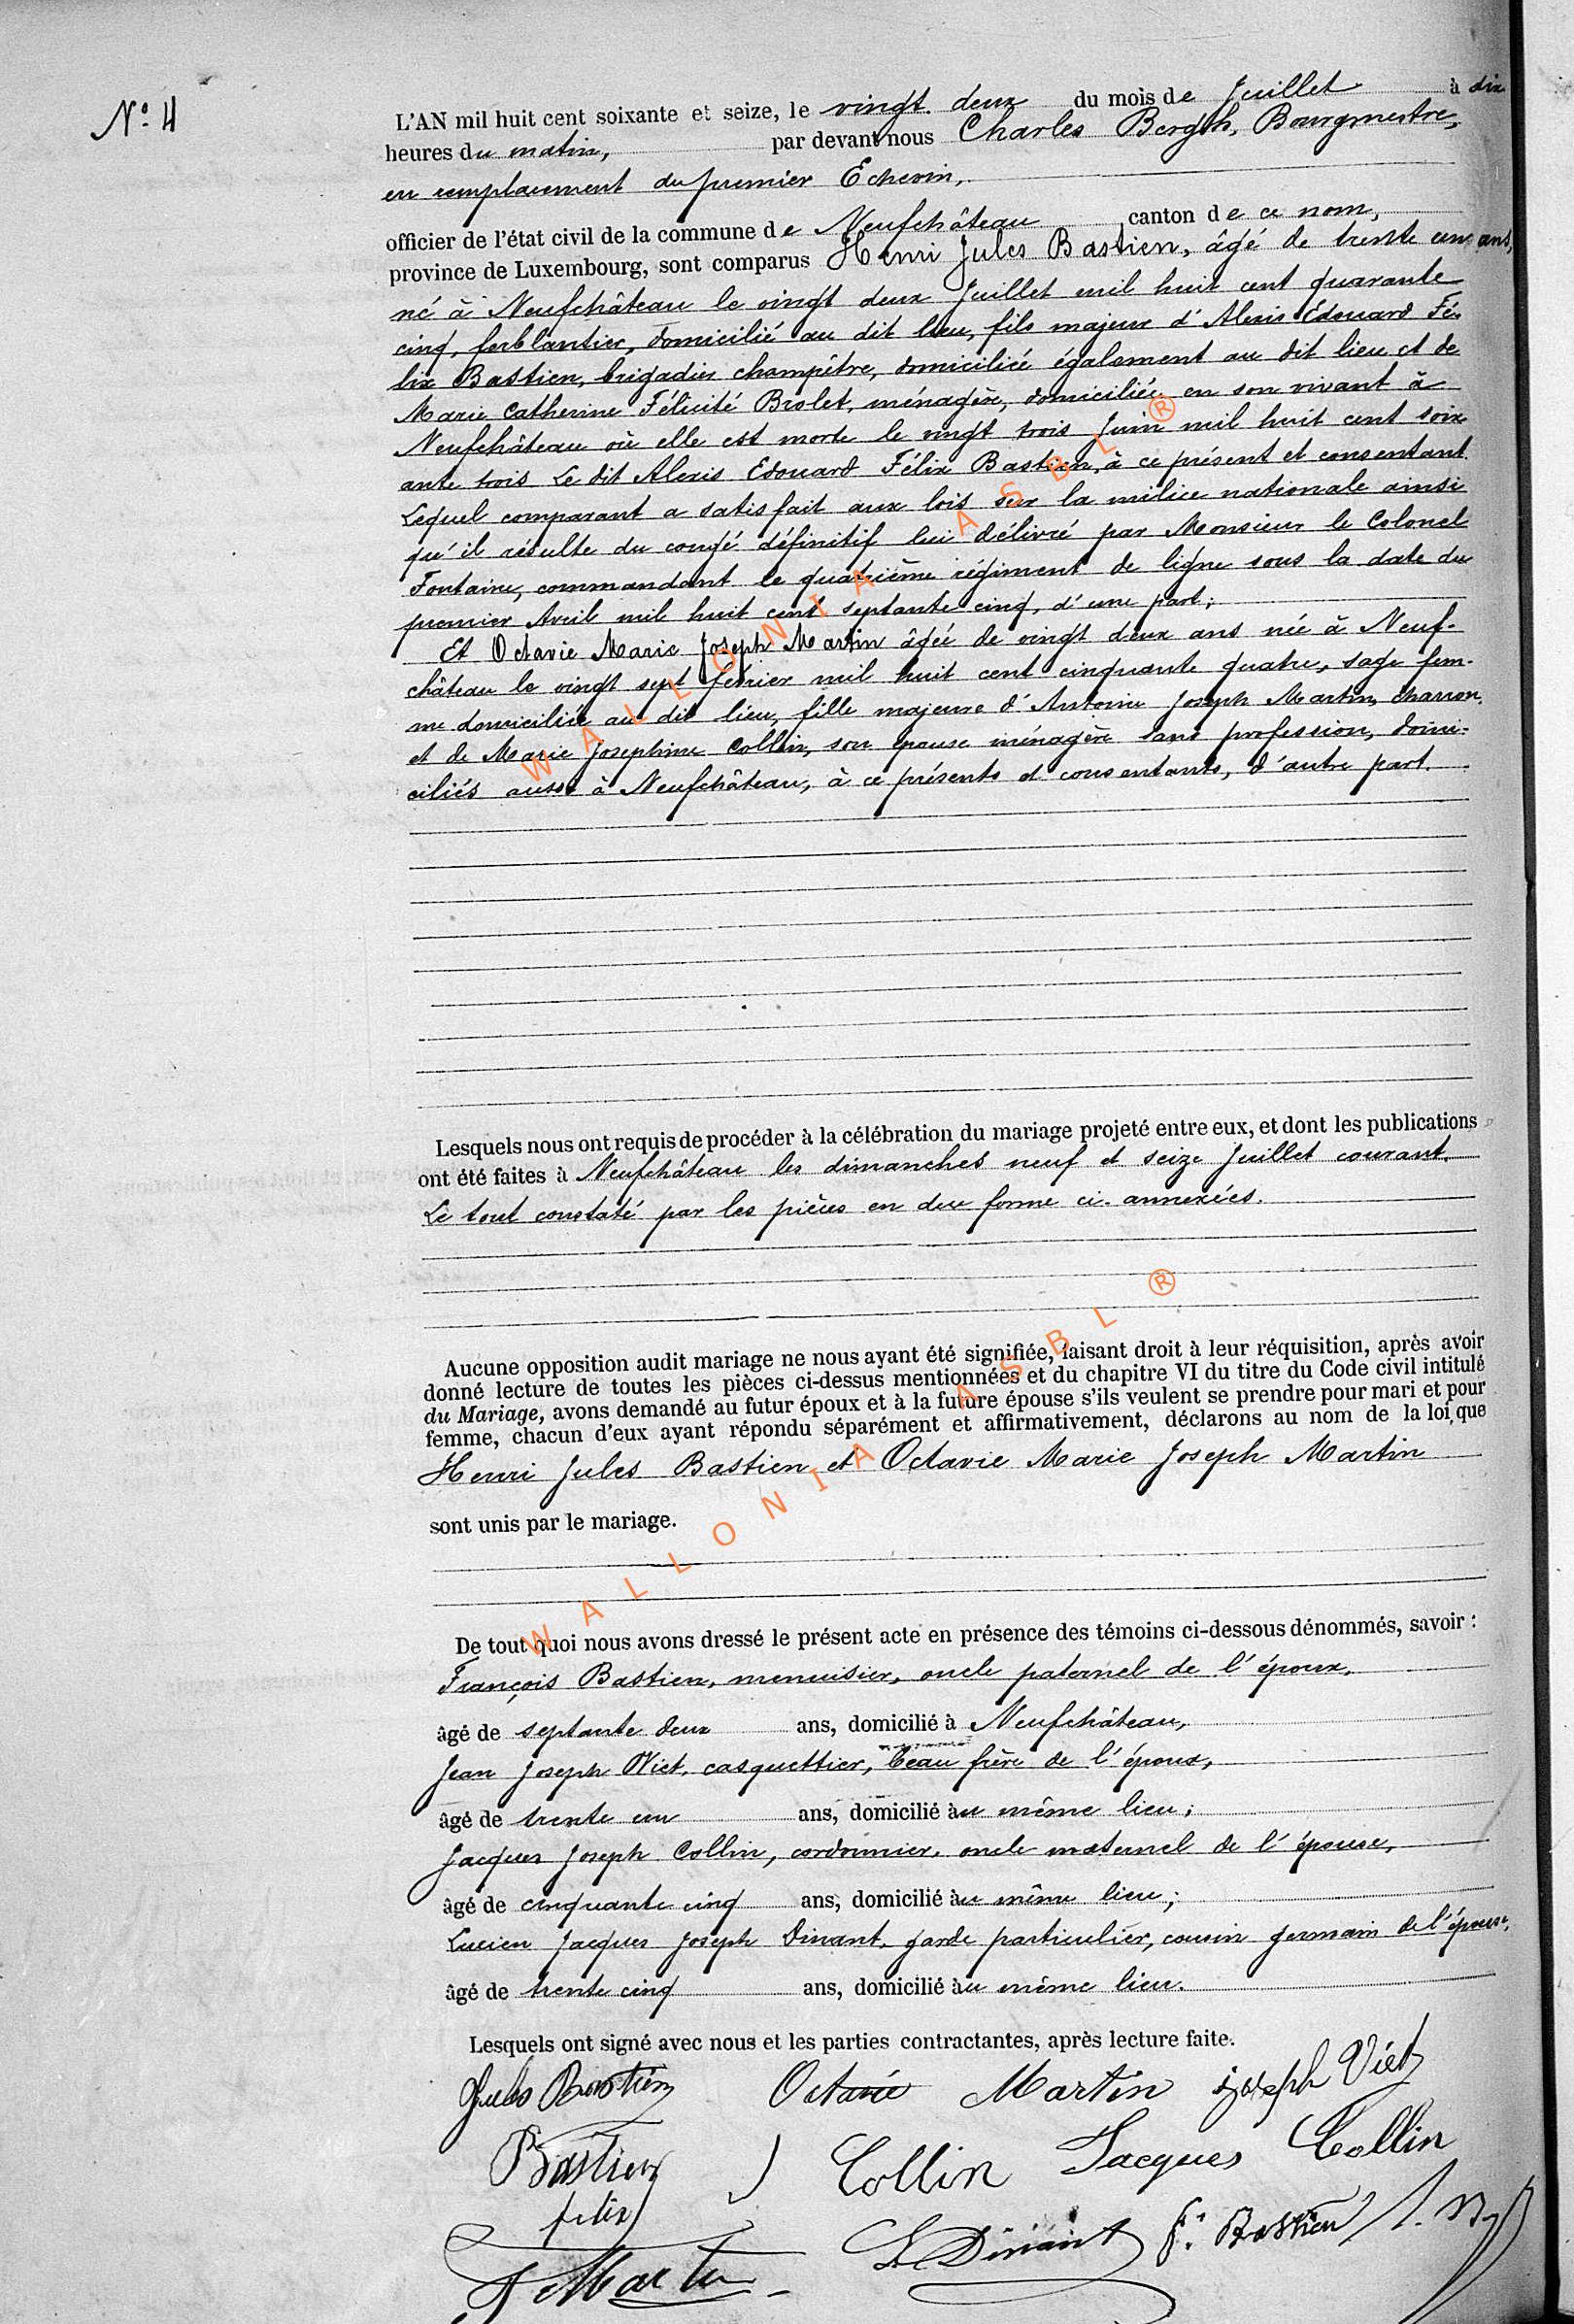 Nº 4
L'AN mil huit cent soixante et seize, le vingt deux du mois de Juillet à dix
heures du matin, par devant nous Charles Bergh, Bourgmestre,
en remplacement du premier Echevin,
officier de l'état civil de la commune de Neufchâteau canton de ce nom,
province de Luxembourg, sont comparus Henri Jules Bastien, âgé de trente un ans,
né à Neufchâteau le vingt deux Juillet mil huit cent quarante
cinq, ferblantier, domicilié au dit lieu, fils majeur d'Alexis Edouard Fé-
lix Bastien, brigadier champêtre, domicilié également au dit lieu et de
Marie Catherine Félicité Brolet, ménagère, domiciliée en son vivant à
Neufchâteau où elle est morte le vingt trois Juin mil huit cent soix
ante trois Le dit Alexis Edouard Félix Bastien, à ce présent et consentant
Lequel comparant a satisfait aux lois sur la milice nationale ainsi
qu'il résulte du congé définitif lui délivré par Monsieur le Colonel
Fontaine, commandant le quatrième régiment de ligne sous la date du
premier Avril mil huit cent septante cinq, d'une part;
Et Octavie Marie Joseph Martin âgée de vingt deux ans née à Neuf-
château le vingt sept février mil huit cent cinquante quatre, sage fem-
me domiciliée au dit lieu, fille majeure d'Antoine Joseph Martin, charron,
et de Marie Josephine Collin, son épouse ménagère sans profession, domi-
ciliés aussi à Neufchâteau, à ce présents et consentants, d'autre part.
Lesquels nous ont requis de procéder à la célébration du mariage projeté entre eux, et dont les publications
ont été faites à Neufchâteau les dimanches neuf et seize Juillet courant.
Le tout constaté par les pièces en due forme ci-annexées.
Aucune opposition audit mariage ne nous ayant été signifiée, faisant droit à leur réquisition, après avoir
donné lecture de toutes les pièces ci-dessus mentionnées et du chapitre VI du titre du Code civil intitulé
du Mariage, avons demandé au futur époux et à la future épouse s'ils veulent se prendre pour mari et pour
femme, chacun d'eux ayant répondu séparément et affirmativement, déclarons au nom de la loi, que
Henri Jules Bastien et Octavie Marie Joseph Martin
sont unis par le mariage.
De tout quoi nous avons dressé le présent acte en présence des témoins ci-dessous dénommés, savoir :
François Bastien, menuisier, oncle paternel de l'époux,
âgé de septante deux ans, domicilié à Neufchâteau,
Jean Joseph Viet, casquettier, beau frère de l'époux,
âgé de trente un ans, domicilié au même lieu;
Jacques Joseph Collin, cordonnier, oncle maternel de l'épouse,
âgé de cinquante cinq ans, domicilié au même lieu;
Lucien Jacques Joseph Dinant, garde particulier, cousin germain de l'épouse,
âgé de trente cinq ans, domicilié au même lieu.
Lesquels ont signé avec nous et les parties contractantes, après lecture faite.
Jules Bastien Octavie Martin joseph Viet
Bastien J Collin Jacques Collin
felix
L Dinant f. Bastien
Martin
WALLONIA ASBL ®
WALLONIA ASBL ®